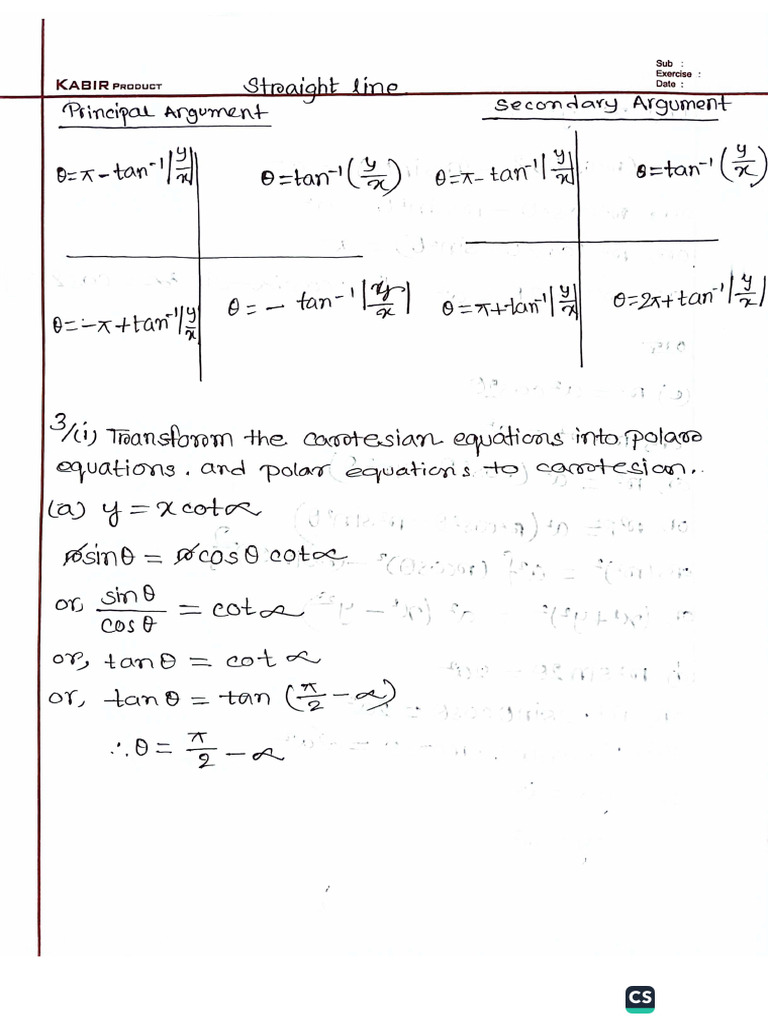 Sub :
Exercise :
Date :
KABIR PRODUCT
Straight line
Principal Argument
Secondary Argument
θ=π-tan⁻¹|y/x|
θ=tan⁻¹(y/x)
θ=π-tan⁻¹|y/x|
θ=tan⁻¹(y/x)
θ=-π+tan⁻¹|y/x|
θ=-tan⁻¹|y/x|
θ=π+tan⁻¹|y/x|
θ=2π+tan⁻¹|y/x|
3/(i) Transform the cartesian equations into polar
equations. and polar equations to cartesian.
(a) y = x cot α
r sin θ = r cos θ cot α
or, sin θ / cos θ = cot α
or, tan θ = cot α
or, tan θ = tan (π/2 - α)
∴ θ = π/2 - α
CS